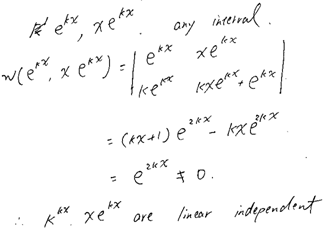 e^{kx}, xe^{kx}. any interval.
w(e^{kx}, xe^{kx}) = | e^{kx} xe^{kx} |
| ke^{kx} kxe^{kx} + e^{kx} |
= (kx+1) e^{2kx} - kxe^{2kx}
= e^{2kx} ≠ 0.
∴ k^{kx} xe^{kx} are linear independent